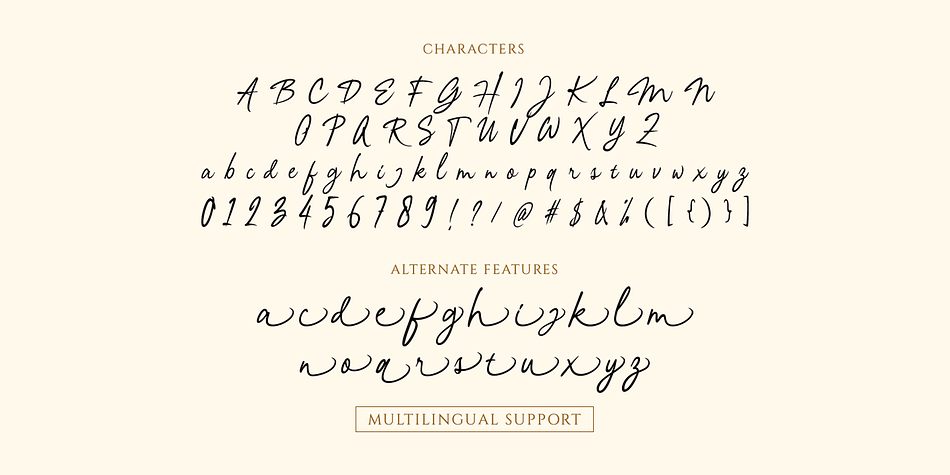 CHARACTERS
A B C D E F G H I J K L M N
O P Q R S T U V W X Y Z
a b c d e f g h i j k l m n o p q r s t u v w x y z
0 1 2 3 4 5 6 7 8 9 ! ? / @ # $ & % ( [ { ) } ]
ALTERNATE FEATURES
a c d e f g h i j k l m
n o q r s t u x y z
MULTILINGUAL SUPPORT